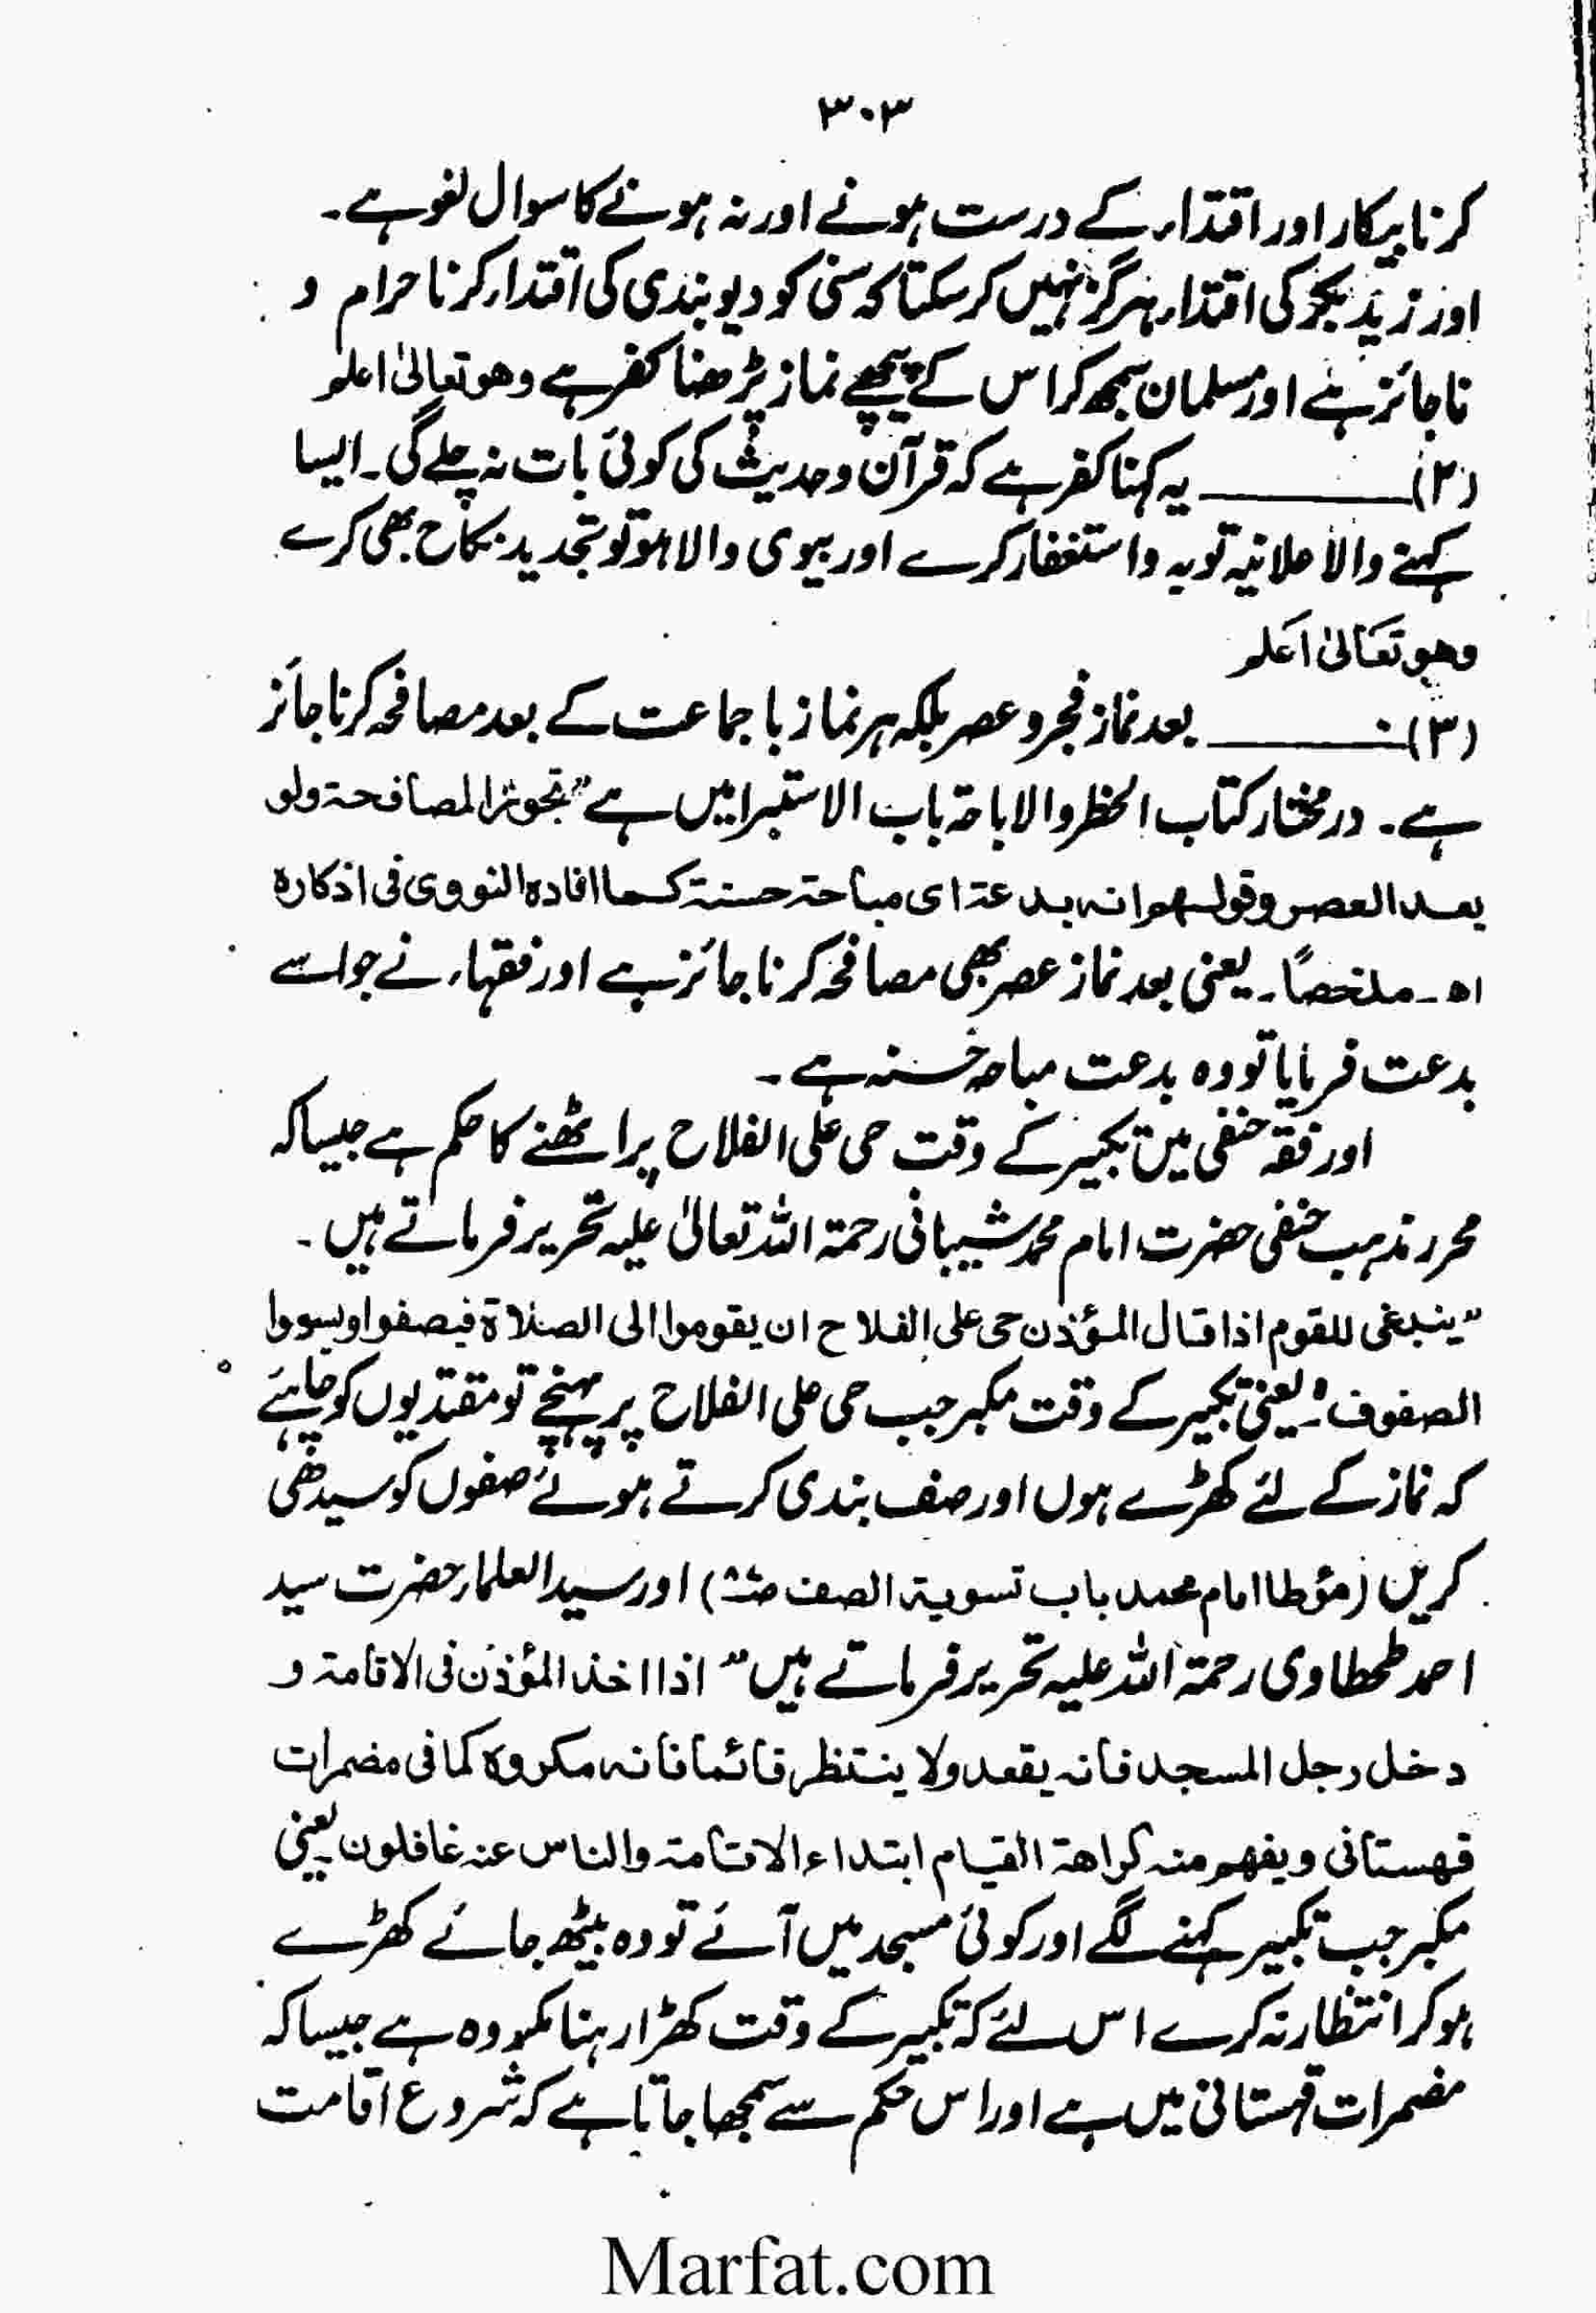 ۳۰۳
کرنا بیکار اور اقتداء کے درست ہونے اور نہ ہونے کا سوال لغو ہے۔
اور زید بکر کی اقتداء ہرگز نہیں کر سکتا کہ سنی کو دیوبندی کی اقتداء کرنا حرام و
ناجائز ہے اور مسلمان سمجھ کر اس کے پیچھے نماز پڑھنا کفر ہے وھو تعالیٰ اعلم
(۲) ــــــــ یہ کہنا کفر ہے کہ قرآن و حدیث کی کوئی بات نہ چلے گی۔ ایسا
کہنے والا علانیہ توبہ و استغفار کرے اور بیوی والا ہو تو تجدید نکاح بھی کرے
وھو تعالیٰ اعلم
(۳) ــــــــ بعد نماز فجر و عصر بلکہ ہر نماز باجماعت کے بعد مصافحہ کرنا جائز
ہے۔ درمختار کتاب الحظر والاباحۃ باب الاستبرا میں ہے ”تجوز المصافحۃ ولو
بعد العصر وقولھم انہ بدعۃ ای مباحۃ حسنۃ کما افادہ النووی فی اذکارہ
اھ۔ ملخصاً۔ یعنی بعد نماز عصر بھی مصافحہ کرنا جائز ہے اور فقہاء نے جو اسے
بدعت فرمایا تو وہ بدعت مباحہ حسنہ ہے۔
اور فقہ حنفی میں تکبیر کے وقت حی علی الفلاح پر اٹھنے کا حکم ہے جیسا کہ
محرر مذہب حنفی حضرت امام محمد شیبانی رحمۃ اللہ تعالیٰ علیہ تحریر فرماتے ہیں۔
”ینبغی للقوم اذا قال المؤذن حی علی الفلاح ان یقوموا الی الصلاۃ فیصفوا ویسووا
الصفوف“ یعنی تکبیر کے وقت مکبر جب حی علی الفلاح پر پہنچے تو مقتدیوں کو چاہئے
کہ نماز کے لئے کھڑے ہوں اور صف بندی کرتے ہوئے صفوں کو سیدھی
کریں (مؤطا امام محمد باب تسویۃ الصف ) اور سید العلماء حضرت سید
احمد طحطاوی رحمۃ اللہ علیہ تحریر فرماتے ہیں ” اذا اخذ المؤذن فی الاقامۃ و
دخل رجل المسجد فانہ یقعد ولا ینتظر قائما فانہ مکروہ کما فی مضمرات
قہستانی ویفھم منہ کراھۃ القیام ابتداء الاقامۃ والناس عنہ غافلون۔ یعنی
مکبر جب تکبیر کہنے لگے اور کوئی مسجد میں آئے تو وہ بیٹھ جائے کھڑے
ہو کر انتظار نہ کرے اس لئے کہ تکبیر کے وقت کھڑا رہنا مکروہ ہے جیسا کہ
مضمرات قہستانی میں ہے اور اس حکم سے سمجھا جاتا ہے کہ شروع اقامت
Marfat.com